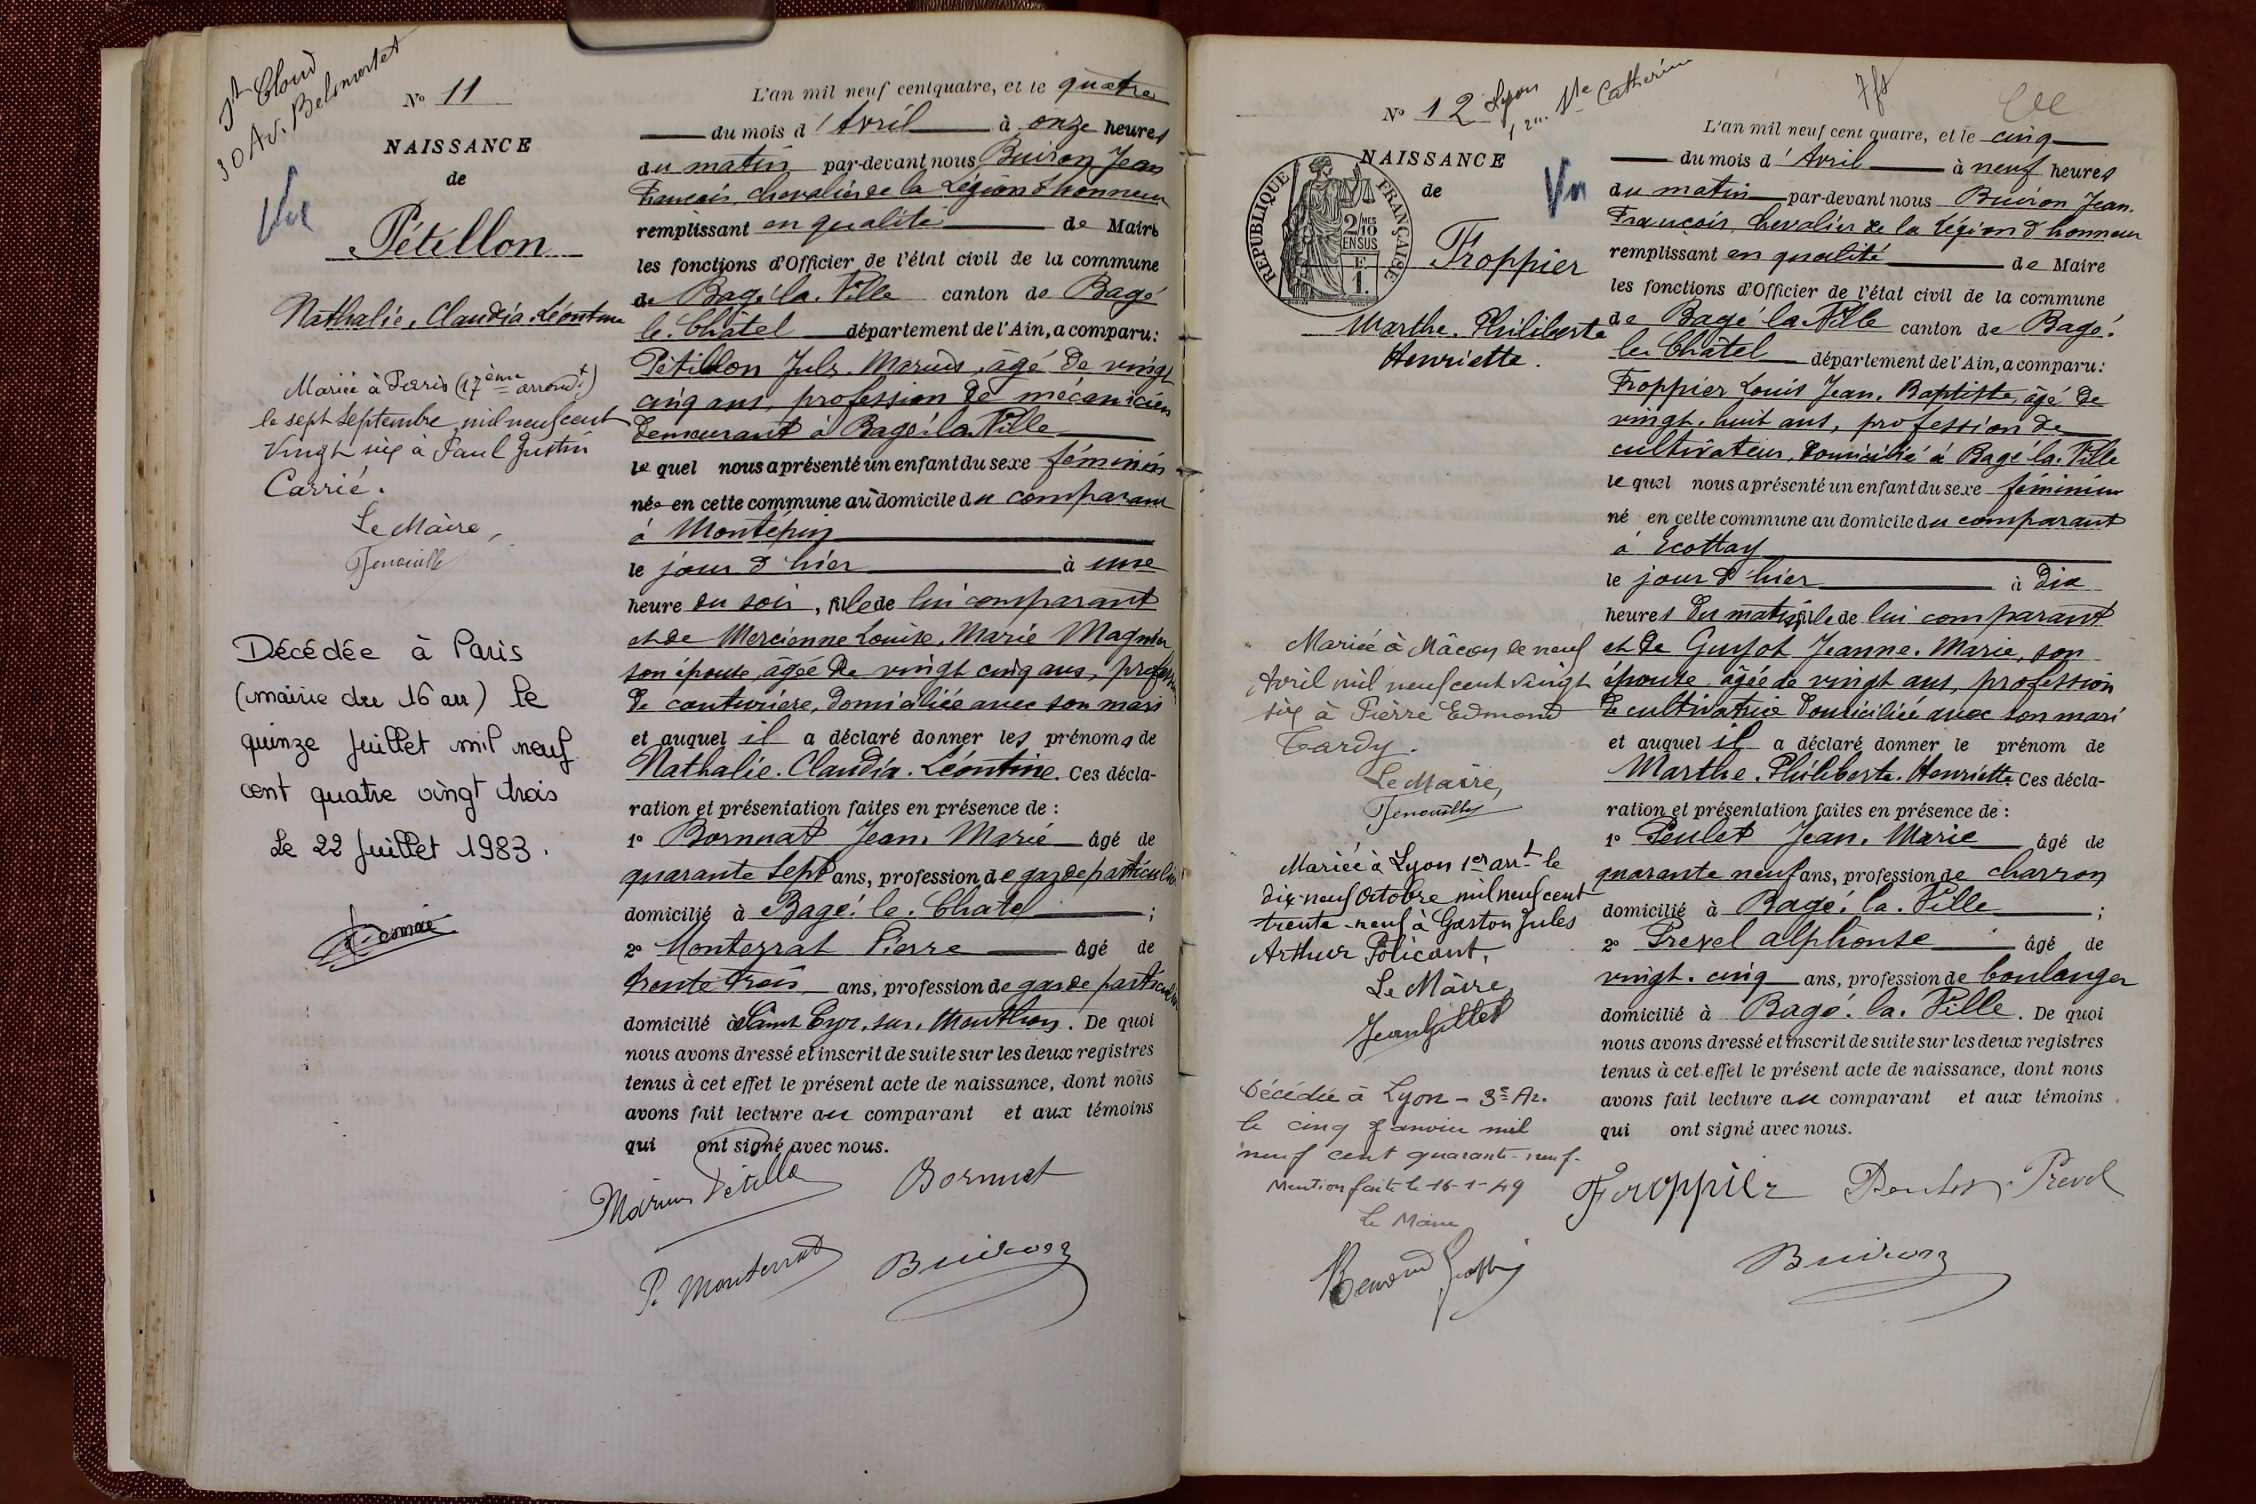 St Cloud
30 Av. Belmontet
No 11
NAISSANCE
de
Pétillon
Nathalie, Claudia. Léontine
Mariée à Paris (17ème arrondt)
le sept Septembre mil neuf cent
Vingt six à Paul Justin
Carrié.
Le Maire,
Décédée à Paris
(mairie du 16 arr) le
quinze Juillet mil neuf
cent quatre vingt trois
Le 22 Juillet 1983.
L'an mil neuf cent quatre, et le quatre
du mois d'Avril à onze heures
du matin par-devant nous Buiron Jean
François, chevalier de la Légion d'honneur
remplissant en qualité de Maire
les fonctions d'Officier de l'état civil de la commune
de Bagé. la. Ville canton de Bagé
le. Châtel département de l'Ain, a comparu:
Pétillon Jules. Marius, âgé de vingt
cinq ans, profession de mécanicien
demeurant à Bagé. la. Ville
lequel nous a présenté un enfant du sexe féminin
née en cette commune au domicile du comparant
à Montépin
le jour d'hier à une
heure du soir, fille de lui comparant
et de Mercienne Louise, Marie Magnin
son épouse, âgée de vingt cinq ans, profession
de couturière, domiciliée avec son mari
et auquel il a déclaré donner les prénoms de
Nathalie. Claudia. Léontine. Ces décla-
ration et présentation faites en présence de :
1o Bornuat Jean, Marie âgé de
quarante sept ans, profession de garde particulier
domicilié à Bagé. le. Chatel ;
2o Monterrat Pierre âgé de
trente trois ans, profession de garde particulier
domicilié à Saint Cyr. sur. Menthon. De quoi
nous avons dressé et inscrit de suite sur les deux registres
tenus à cet effet le présent acte de naissance, dont nous
avons fait lecture au comparant et aux témoins
qui ont signé avec nous.
Marius Pétillon Bornuat
P. Monterrat Buiron
No 12 Lyon
1 r. Ste Catherine
NAISSANCE
de
REPUBLIQUE FRANÇAISE
2/10 MES
EN SUS
F
1.
Froppier
Marthe. Philiberte
Henriette.
Mariée à Mâcon le neuf
Avril mil neuf cent vingt
six à Pierre Edmond
Tardy.
Le Maire,
Mariée à Lyon 1er arrt le
dix-neuf Octobre mil neuf cent
trente-neuf à Gaston Jules
Arthur Policant.
Le Maire
Jean Gillet
Décédée à Lyon - 3e Ar.
le cinq Janvier mil
neuf cent quarante-neuf.
Mention faite le 16-1-49
Le Maire
L'an mil neuf cent quatre, et le cinq
du mois d'Avril à neuf heures
du matin par-devant nous Buiron Jean.
François, chevalier de la légion d'honneur
remplissant en qualité de Maire
les fonctions d'Officier de l'état civil de la commune
de Bagé la Ville canton de Bagé.
le. Châtel département de l'Ain, a comparu:
Froppier Louis Jean. Baptiste, âgé de
vingt. huit ans, profession de
cultivateur, domicilié à Bagé. la. Ville
lequel nous a présenté un enfant du sexe féminin
né en cette commune au domicile du comparant
à Ecottay
le jour d'hier à dix
heures du matin, fille de lui comparant
et de Guyot Jeanne. Marie, son
épouse âgée de vingt ans, profession
de cultivatrice domiciliée avec son mari
et auquel il a déclaré donner le prénom de
Marthe. Philiberte. Henriette. Ces décla-
ration et présentation faites en présence de :
1o Peulet Jean. Marie âgé de
quarante neuf ans, profession de charron
domicilié à Bagé. la. Ville ;
2o Prevel alphonse âgé de
vingt. cinq ans, profession de boulanger
domicilié à Bagé. la. Ville. De quoi
nous avons dressé et inscrit de suite sur les deux registres
tenus à cet effet le présent acte de naissance, dont nous
avons fait lecture au comparant et aux témoins
qui ont signé avec nous.
Froppier Peulet Prevel
Buiron